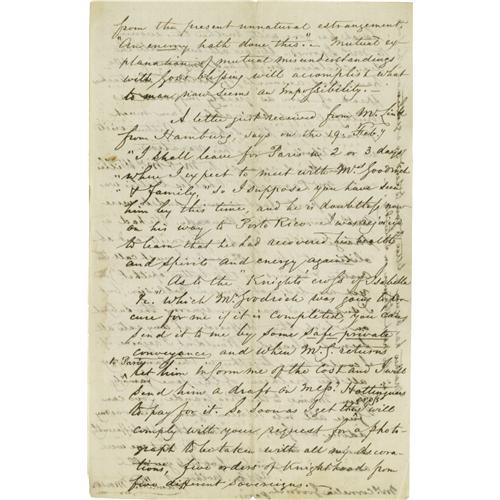 from the present unnatural estrangement,
"An enemy hath done this". Mutual ex-
planation of mutual misunderstandings
with God's blessing will accomplish what
to man now seems an impossibility.—
A letter just received from Mr. Lind
from Hamburg, says on the 19th Feby
"I shall leave for Paris in 2 or 3 days
"where I expect to meet with Mrs Goodrich
"& family" so I suppose you have seen
him by this time, and he is doubtless now
on his way to Porto Rico. I was rejoiced
to learn that he had recovered his health
and spirits and energy again.
As to the "Knights cross of Isabella
&c." which Mr. Goodrich was going to pro-
cure for me if it is completed you can
send it to me by some safe private
conveyance, and when Mr. G. returns
to Paris
let him inform me of the cost and I will
send him a draft on Messrs. Hottinguer
to pay for it. So soon as I get this
will
comply with your request for a photo-
graph to be taken with all my decora-
tions, five orders of Knighthood from
five different Sovereigns.